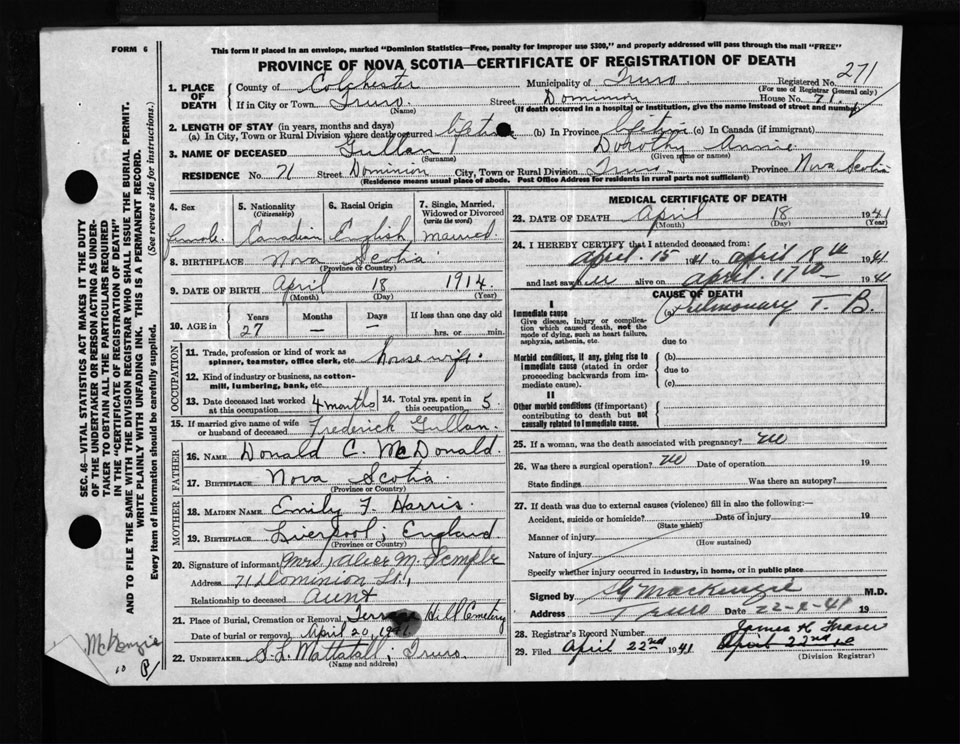 FORM 6
This form if placed in an envelope, marked "Dominion Statistics—Free, penalty for improper use $300," and properly addressed will pass through the mail "FREE"
PROVINCE OF NOVA SCOTIA—CERTIFICATE OF REGISTRATION OF DEATH
271
1. PLACE OF DEATH
County of Colchester Municipality of Truro Registered No.
(For use of Registrar General only)
If in City or Town Truro Street Dominion House No. 71
(Name) (If death occurred in a hospital or institution, give the name instead of street and number)
2. LENGTH OF STAY (in years, months and days)
(a) In City, Town or Rural Division where death occurred lifetime (b) In Province lifetime (c) In Canada (if immigrant)
3. NAME OF DECEASED Gullan Dorothy Annie
(Surname) (Given name or names)
RESIDENCE No. 71 Street Dominion City, Town or Rural Division Truro Province Nova Scotia
(Residence means usual place of abode. Post Office Address for residents in rural parts not sufficient)
4. Sex 5. Nationality (Citizenship) 6. Racial Origin 7. Single, Married, Widowed or Divorced (write the word)
female Canadian English married
8. BIRTHPLACE Nova Scotia
(Province or Country)
9. DATE OF BIRTH April 18 1914
(Month) (Day) (Year)
10. AGE in Years Months Days If less than one day old
27 — — hrs. or min.
OCCUPATION
11. Trade, profession or kind of work as spinner, teamster, office clerk, etc. housewife
12. Kind of industry or business, as cotton-mill, lumbering, bank, etc.
13. Date deceased last worked at this occupation 4 months 14. Total yrs. spent in this occupation 5
15. If married give name of wife or husband of deceased Frederick Gullan
FATHER
16. NAME Donald C. McDonald
17. BIRTHPLACE Nova Scotia
(Province or Country)
MOTHER
18. MAIDEN NAME Emily F. Harris
19. BIRTHPLACE Liverpool; England
(Province or Country)
20. Signature of informant Mrs. Alice M. Semple
Address 71 Dominion St.,
Relationship to deceased Aunt
21. Place of Burial, Cremation or Removal Hill Cemetery
Date of burial or removal April 20, 1941
22. UNDERTAKER S. L. Mattatall; Truro
(Name and address)
MEDICAL CERTIFICATE OF DEATH
23. DATE OF DEATH April 18 1941
(Month) (Day) (Year)
24. I HEREBY CERTIFY that I attended deceased from:
April. 15 1941 to April 18th 1941
and last saw her alive on April. 17th 1941
CAUSE OF DEATH
I
Immediate cause (a) Pulmonary T. B.
Give disease, injury or complication which caused death, not the mode of dying, such as heart failure, asphyxia, asthenia, etc.
due to
Morbid conditions, if any, giving rise to immediate cause (stated in order proceeding backwards from immediate cause).
(b)
due to
(c)
II
Other morbid conditions (if important) contributing to death but not causally related to immediate cause.
25. If a woman, was the death associated with pregnancy? no
26. Was there a surgical operation? no Date of operation 19
State findings Was there an autopsy?
27. If death was due to external causes (violence) fill in also the following:—
Accident, suicide or homicide? Date of injury 19
(State which)
Manner of injury
(How sustained)
Nature of injury
Specify whether injury occurred in industry, in home, or in public place
Signed by MacKenzie M.D.
Address Truro Date 22-4-41 19
28. Registrar's Record Number James H. Fraser
29. Filed April 22nd 1941 April 22nd
(Division Registrar)
SEC. 46—VITAL STATISTICS ACT MAKES IT THE DUTY
OF THE UNDERTAKER OR PERSON ACTING AS UNDER-
TAKER TO OBTAIN ALL THE PARTICULARS REQUIRED
IN THE "CERTIFICATE OF REGISTRATION OF DEATH"
AND TO FILE THE SAME WITH THE DIVISION REGISTRAR WHO SHALL ISSUE THE BURIAL PERMIT.
WRITE PLAINLY WITH UNFADING INK. THIS IS A PERMANENT RECORD.
Every item of information should be carefully supplied. (See reverse side for instructions.)
McKenzie